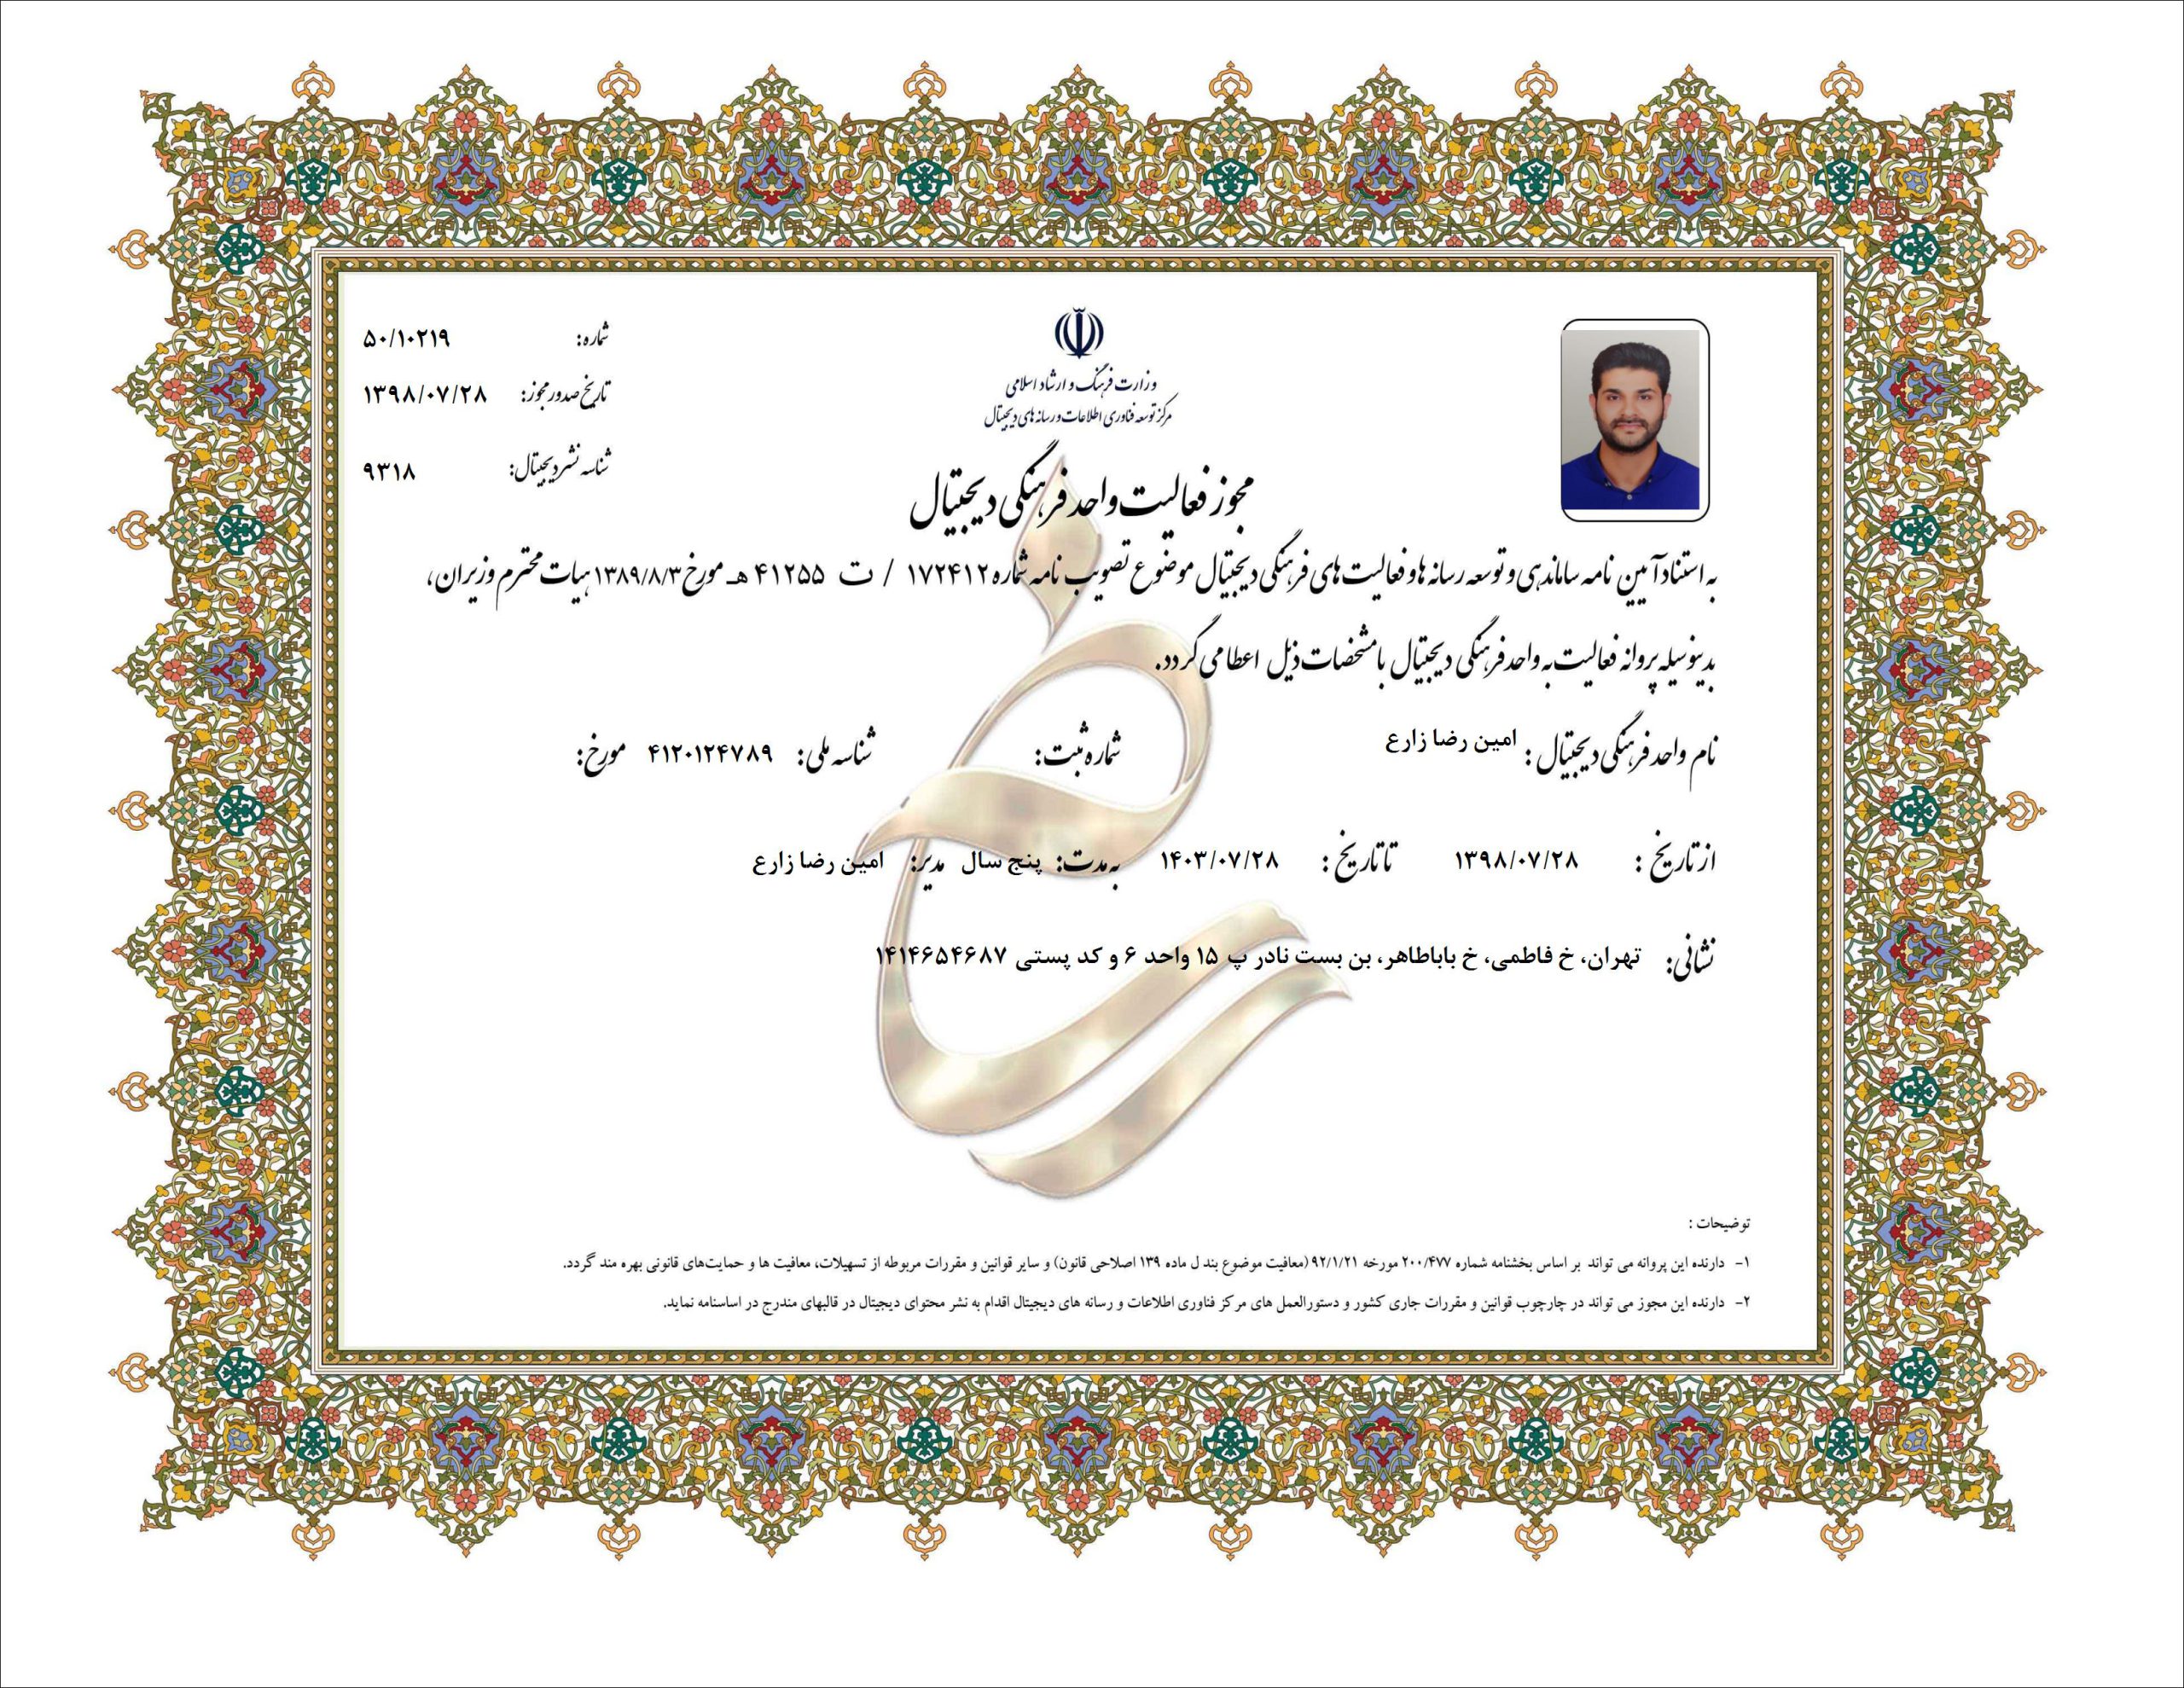 وزارت فرهنگ و ارشاد اسلامی
مرکز توسعه فناوری اطلاعات و رسانه های دیجیتال
شماره: ۵۰/۱۰۲۱۹
تاریخ صدور مجوز: ۱۳۹۸/۰۷/۲۸
شناسه نشر دیجیتال: ۹۳۱۸
مجوز فعالیت واحد فرهنگی دیجیتال
به استناد آیین نامه ساماندهی و توسعه رسانه ها و فعالیت های فرهنگی دیجیتال موضوع تصویب نامه شماره ۱۷۲۴۱۲ / ت ۴۱۲۵۵ هـ مورخ ۱۳۸۹/۸/۳ هیات محترم وزیران،
بدینوسیله پروانه فعالیت به واحد فرهنگی دیجیتال با مشخصات ذیل اعطا می گردد.
نام واحد فرهنگی دیجیتال : امین رضا زارع شماره ثبت: شناسه ملی: ۴۱۲۰۱۲۴۷۸۹ مورخ:
از تاریخ : ۱۳۹۸/۰۷/۲۸ تا تاریخ : ۱۴۰۳/۰۷/۲۸ به مدت: پنج سال مدیر: امین رضا زارع
نشانی: تهران، خ فاطمی، خ باباطاهر، بن بست نادر پ ۱۵ واحد ۶ و کد پستی ۱۴۱۴۶۵۴۶۸۷
توضیحات :
۱- دارنده این پروانه می تواند بر اساس بخشنامه شماره ۲۰۰/۴۷۷ مورخه ۹۲/۱/۲۱ (معافیت موضوع بند ل ماده ۱۳۹ اصلاحی قانون) و سایر قوانین و مقررات مربوطه از تسهیلات، معافیت ها و حمایت‌های قانونی بهره مند گردد.
۲- دارنده این مجوز می تواند در چارچوب قوانین و مقررات جاری کشور و دستورالعمل های مرکز فناوری اطلاعات و رسانه های دیجیتال اقدام به نشر محتوای دیجیتال در قالبهای مندرج در اساسنامه نماید.